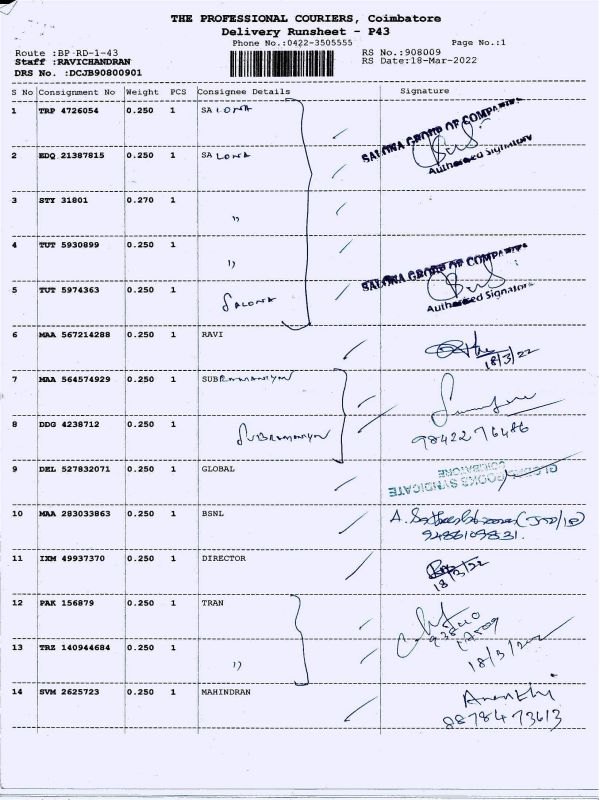 THE PROFESSIONAL COURIERS, Coimbatore
Delivery Runsheet - P43
Phone No.:0422-3505555 Page No.:1
Route :BP-RD-1-43 RS No.:908009
Staff :RAVICHANDRAN RS Date:18-Mar-2022
DRS No. :DCJB90800901
S No Consignment No Weight PCS Consignee Details Signature
1 TRP 4726054 0.250 1 SALONA
SALONA GROUP OF COMPANIES
Authorised Signatory
2 EDQ 21387815 0.250 1 SALONA
3 STY 31801 0.270 1 "
4 TUT 5930899 0.250 1 "
SALONA GROUP OF COMPANIES
Authorised Signatory
5 TUT 5974363 0.250 1 SALONA
6 MAA 567214288 0.250 1 RAVI
18/3/22
7 MAA 564574929 0.250 1 SUBRAMANIYAN
8 DDG 4238712 0.250 1 SUBRAMANIYAN
98422 76486
9 DEL 527832071 0.250 1 GLOBAL
GLOBAL BOOKS SYNDICATE
COIMBATORE
10 MAA 283033863 0.250 1 BSNL
11 IXM 49937370 0.250 1 DIRECTOR
18/3/22
12 PAK 156879 0.250 1 TRAN
13 TRZ 140944684 0.250 1 "
18/3/2022
14 SVM 2625723 0.250 1 MAHINDRAN
8878473613